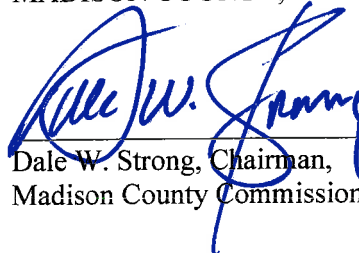 MADISON COUNTY,
Dale W. Strong
Dale W. Strong, Chairman,
Madison County Commission